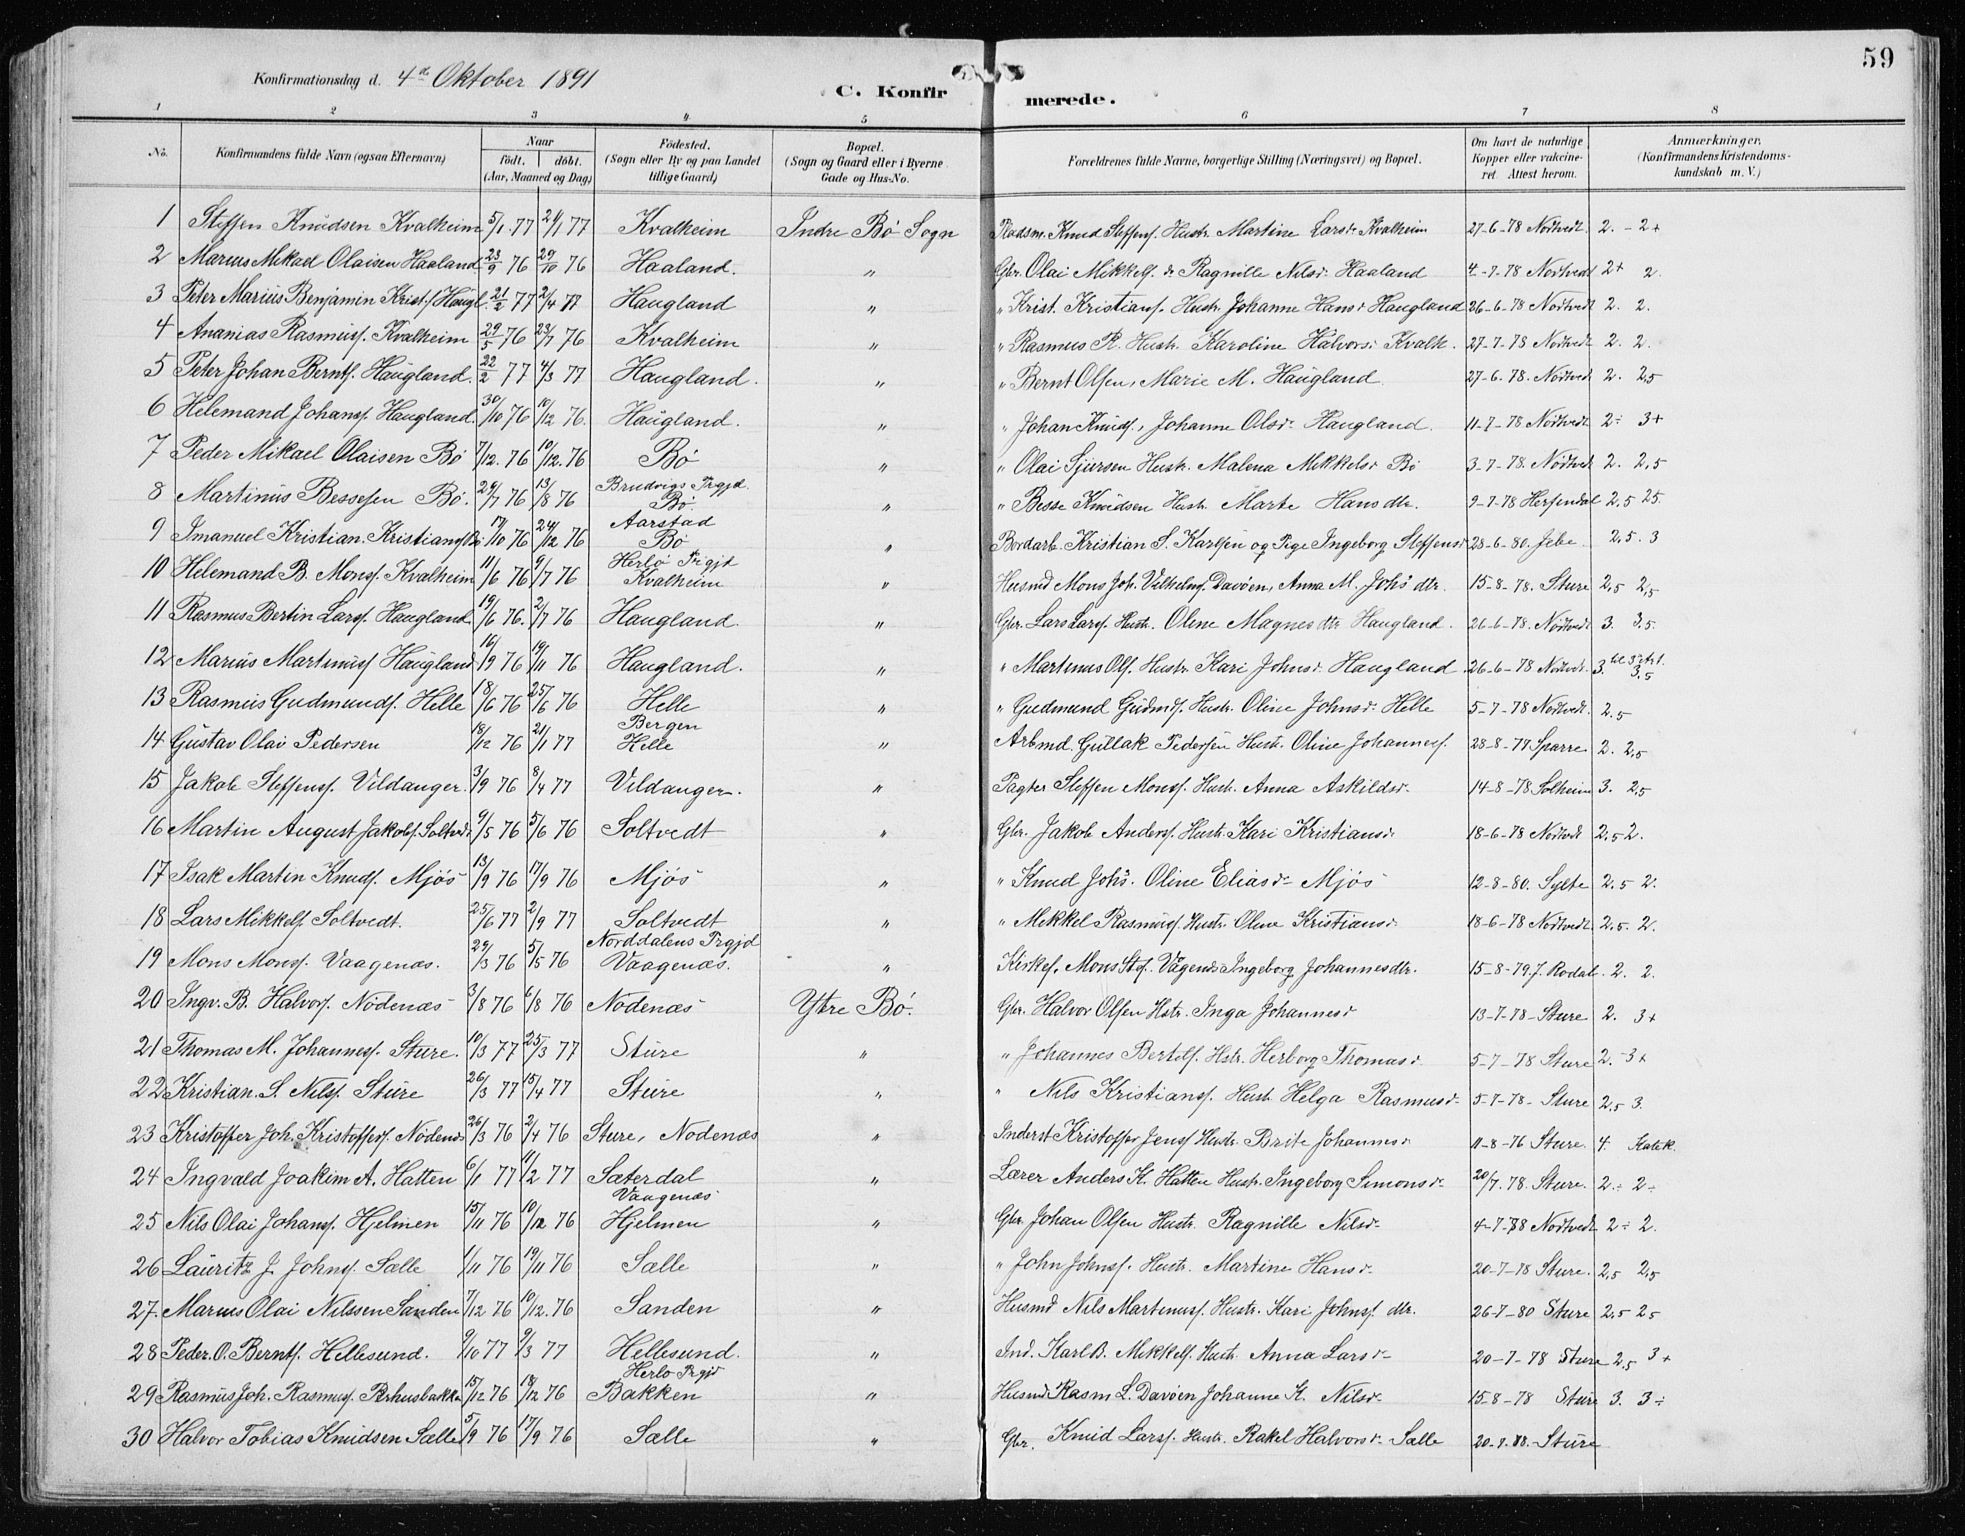 59
Konfirmationsdag d. 4de Oktober 1891
C. Konfirmerede.
1 2 3 4 5 6 7 8
No. Konfirmandens fulde Navn (ogsaa Efternavn) Naar født. døbt. (Aar, Maaned og Dag) Fødested. (Sogn eller By og paa Landet tillige Gaard) Bopæl. (Sogn og Gaard eller i Byerne Gade og Hus-No. Forældrenes fulde Navne, borgerlige Stilling (Næringsvei) og Bopæl. Om havt de naturlige Kopper eller vakcineret. Attest herom. Anmærkninger. (Konfirmandens Kristendomskundskab m. V.)
1 Steffen Knudsen Kvalheim 5/1 77 21/1 77 Kvalheim Indre Bø Sogn Knud Steffens. Hustr. Martine Larsdr Kvalheim 27-6-78 Nødtvedt. 2. - 2+
2 Marius Mikael Olaisen Haaland 23/9 76 29/10 76 Haaland. " Gbr. Olai Mikkels. & Ragnille Nilsdr Haaland 4-7-78 Nødtvedt 2+ 2.
3 Peter Marius Benjamin Krist.s Haugl. 21/2 77 2/4 77 Haugland " " Krist. Kristians. Hustr. Johanne Hansdr Haugland 26-6-78 Nødtvedt 2. 2.
4 Ananias Rasmuss. Kvalheim 29/5 76 23/7 76 Kvalheim " " Rasmus R. Hustr. Karoline Halvorsdr Kvalh. 27-7-78 Nødtvedt 2. 2.
5 Peter Johan Bernts. Haugland. 22/2 77 4/3 77 Haugland. " " Bernt Olsen, Marie M. Haugland 27-6-78. Nødtvedt 2. 2,5
6 Helemand Johans. Haugland. 30/10 76 10/12 76. Haugland. " " Johan Knuds., Johanne Olsdr Haugland. 11-7-78 Nødtvedt 2÷ 3+
7 Peder Mikael Olaisen Bø 7/12. 76 10/12. 76 Bø " " Olai Sjursen Hustr. Malena Mikkelsdr Bø 3-7-78. Nødtvedt 2. 2,5
8 Martinus Bessesen Bø. 24/7 76 13/8 76 Brudvigs Prgjd. Bø. " " Besse Knudsen Hustr. Marte Hansdtr. 9-7-78 Herfendal 2,5 25.
9 Imanuel Kristian. Kristians. Bø 17/10 76 24/12 76 Aarstad Bø " Bordarb. Kristian S. Karlsen og Pige Ingeborg Steffensdr 28-6-80. Jebe 2,5. 3
10 Helemand B. Mons. Kvalheim 11/6 76 9/7 76 Herlø Prgjd Kvalheim " Husmd Mons Joh. Vilhelms. Davøen, Anna M. Johs dtr. 15-8-78. Sture 2,5 2,5
11 Rasmus Bertin Lars. Haugland 19/6 76. 2/7 76 Haugland. " Gbr. Lars Lars. Hustr. Oline Magnesdtr Haugland. 26-6-78. Nødtvedt 3. 3.5.
12 Marius Martinus. Haugland 16/9 76 19/11 76 Haugland. " " Martinus Ols. Hustr. Kari Johnsdr Haugland 26-6-78 Nødtvedt. 3. 3.5
13 Rasmus Gudmunds. Helle 18/6 76 25/6 76 Helle " " Gudmund Gudmds. Hustr. Oline Johnsdr Helle 5-7-78 Nødtvedt. 2.5
14 Gustav Olai Pedersen 18/12 76 21/1 77 Bergen Helle " Arbmd. Gullak Pedersen Hustr. Oline Johannes. 28-8-77 Sparre 2. 2,5
15 Jakob Steffens. Vildanger. 3/9 76 8/4 77 Vildanger. " Pagter Steffen Mons. Hustr. Anna Askildsdr. 14-8-78 Solheim 3. 2,5
16 Martin August Jakobs. Soltvedt 9/5 76 5/6 76 Soltvedt " Gbr. Jakob Anders. Hustr. Kari Kristiansdr. 18-6-78 Nødtvedt 2,5 2.
17 Isak Martin Knuds. Mjøs 13/9 76 17/9 76 Mjøs " " Knud Johs. Oline Eliasdr Mjøs 12-8-80. Sylte 2.5 2.
18 Lars Mikkels. Soltvedt. 25/6 77 2/9 77 Soltvedt " " Mikkel Rasmus. Hustr. Oline Kristiansdr 18-6-78 Nødtvedt. 2.5. 2.
19 Mons Mons. Vaagenæs. 29/3 76 5/5 76 Norddalens Prgjd Vaagenæs. " Kirkes. Mons Vågenæs Ingeborg Johannesdtr. 15-8-79. J. Rødal. 2. 2.
20 Ingv. B. Halvors. Nødenæs 3/8 76 6/8 76 Nødenæs Ytre Bø. Gbr. Halvor Olsen Hstr. Inga Johannesdr 13-7-78 - Sture 2. 3+
21 Thomas M. Johannes. Sture. 10/3 77 25/3 77 Sture " " Johannes Bertels. Hstr. Herborg Thomasdr. 5-7-78 Sture 2.-3+
22 Kristian. S. Nils. Sture 26/3 77 15/4 77 Sture " " Nils Kristians. Hustr. Helga Rasmusdr 5-7-78- Sture 2,5 3.
23 Kristoffer Joh. Kristoffers. Nødenæs 26/3 76 2/4 76 Sture, Nødenæs " Inderst Kristoffer Jens. Hustr. Brite Johannesdr 11-8-76 Sture. 4. Katek.
24 Ingvald Joakim A. Hatten 6/1 77 11/2 77 Sæterdal Vaagenæs " Lærer Anders K. Hatten Hustr. Ingeborg Simonsdr 20/7. 78. Sture. 2÷ 2÷
25 Nils Olai Johans. Hjelmen 15/11 76 10/12 76 Hjelmen " Gbr. Johan Olsen Hustr. Ragnille Nilsdr 4-7-78 Nødtvedt 2÷ 2.
26 Lauritz J. Johns. Sælle 1/11 76 19/11 76 Sælle " " John Johns. Hustr. Martine Hansdr 20-7-78 Sture. 2,5 2,5
27. Marius Olai Nilssen Sanden 7/12 76 10/12. 76 Sanden " Husmd Nils Martinus. Hustr. Kari Johns. dtr. 26-7-80 Sture 2,5 25
28 Peder O. Bernts. Hellesund. 9/10 77 9/3 77 Hellesund. " Ind. Karl B. Mikkels. Hustr. Anna Larsdr 20-7-78 Sture 2,5 3+
29 Rasmus Joh. Rasmus. Perhusbakke 15/12 76 18/12 76 Herlø Prgjd Bakken " Husmd Rasm. L. Davøen Johanne K. Nilsdr 15-8-78 Sture 3. 3÷
30 Halvor Tobias Knudsen Sælle 5/9 76 17/9 76 Sælle " Gbr. Knud Lars. Hustr. Rakel Halvorsdr Sælle 20-7-78. Sture